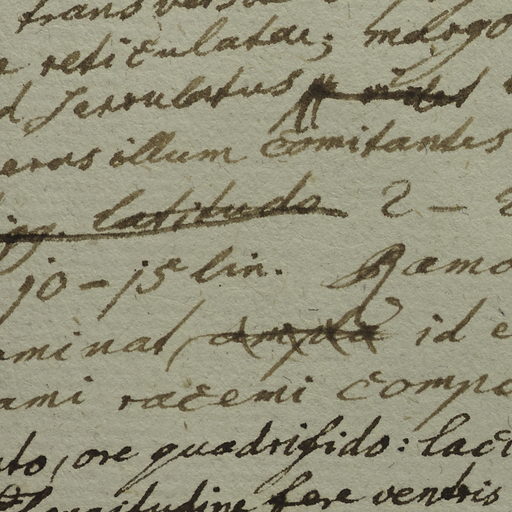 transversa
reticulatae; margo
serrulatus
illum comitantes
latitudo 2 –
10 – 15 lin. Racemo
minat, ampla id e
ami racemi compo
to, ore quadrifido: laci
longitudine fere ventris